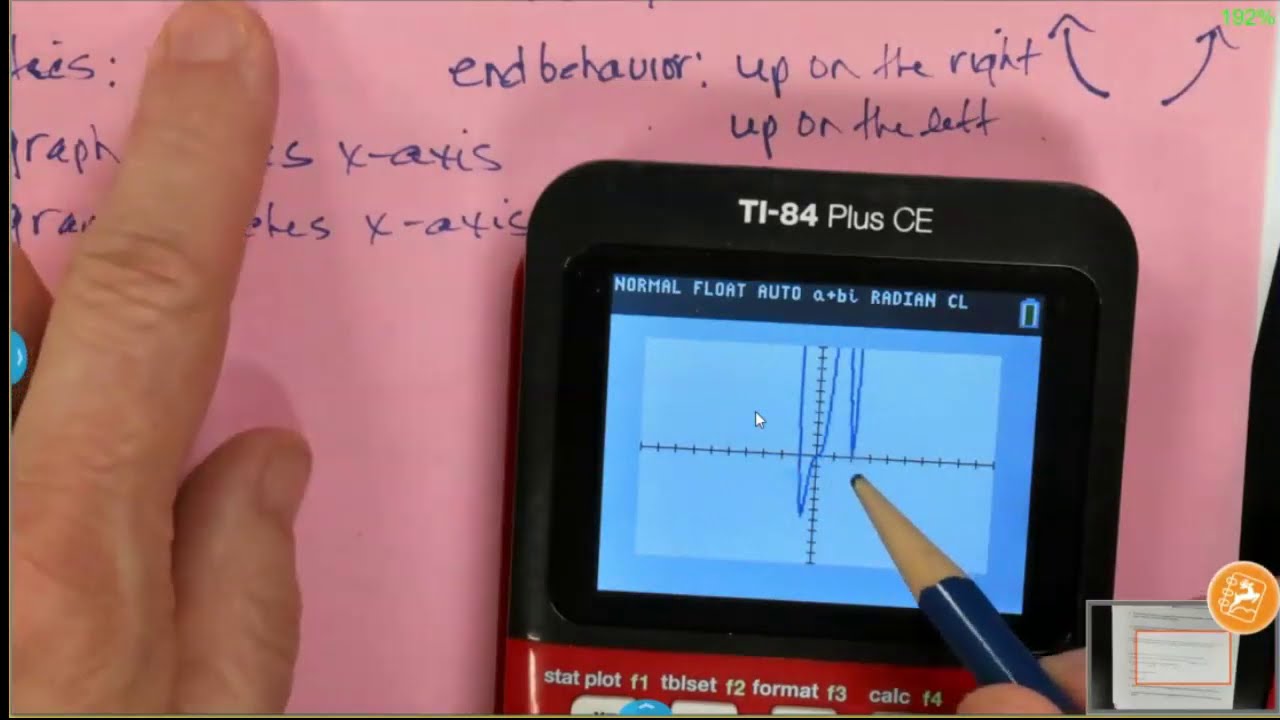 192%
end behavior: up on the right
up on the left
graph x-axis
x-axis
TI-84 Plus CE
NORMAL FLOAT AUTO a+bi RADIAN CL
stat plot f1 tblset f2 format f3 calc f4